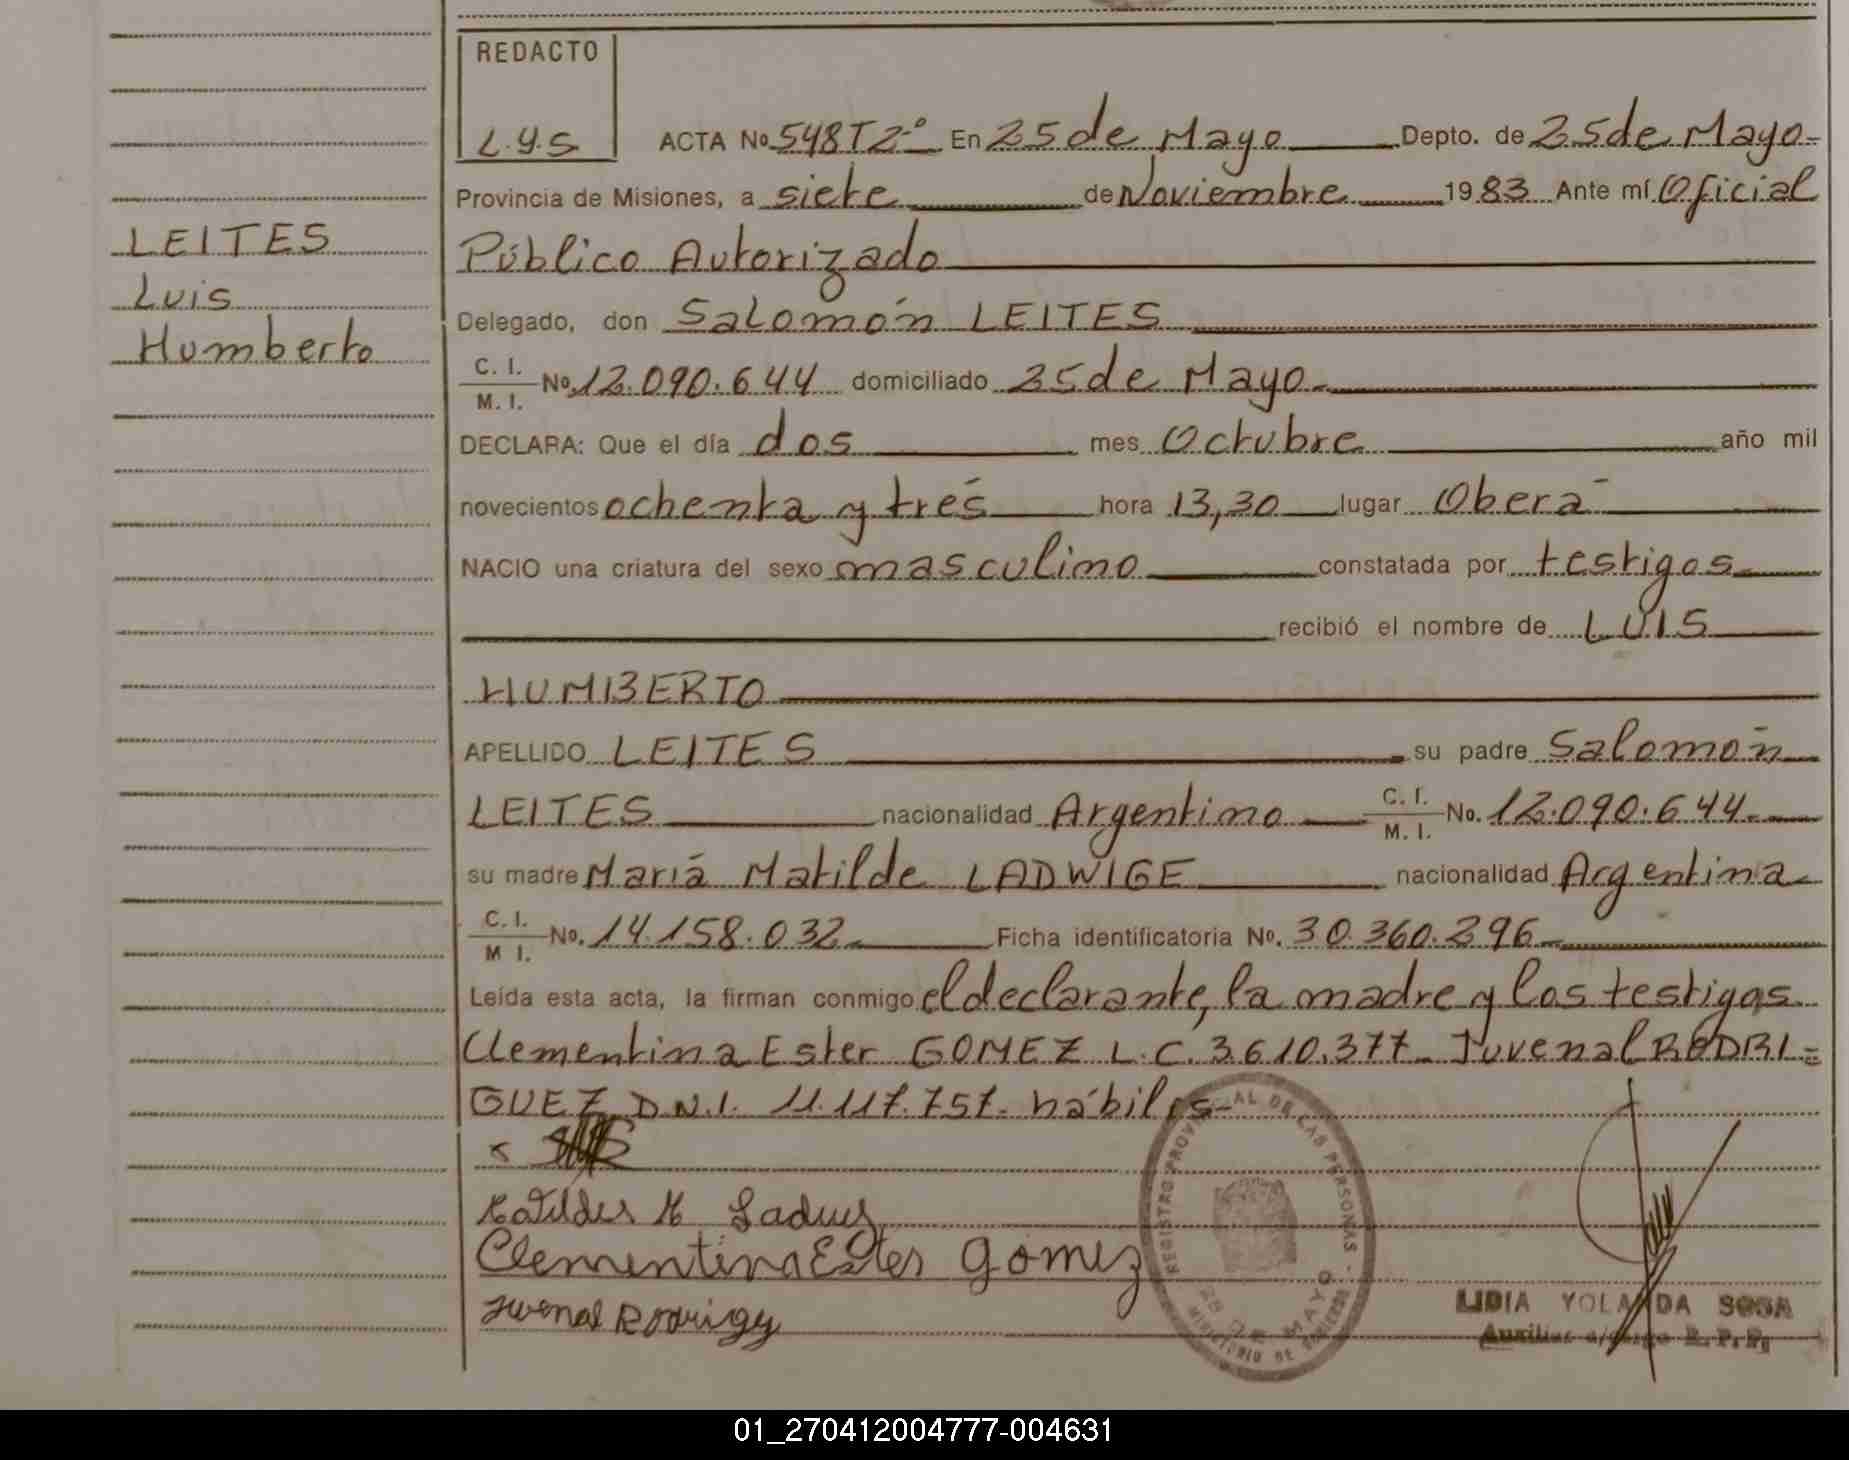 REDACTO
L.Y.S.
ACTA No. 548T2º En 25 de Mayo Depto. de 25 de Mayo
Provincia de Misiones, a siete de Noviembre 1983 Ante mí Oficial
Público Autorizado
LEITES
Luis
Humberto
Delegado, don Salomón LEITES
C. I. / M. I. No. 12.090.644 domiciliado 25 de Mayo
DECLARA: Que el día dos mes Octubre año mil
novecientos ochenta y trés hora 13,30 lugar Oberá
NACIO una criatura del sexo masculino constatada por testigos
recibió el nombre de LUIS
HUMBERTO
APELLIDO LEITES su padre Salomón
LEITES nacionalidad Argentino C. I. / M. I. No. 12.090.644
su madre María Matilde LADWIGE nacionalidad Argentina
C. I. / M I. No. 14.158.032 Ficha identificatoria No. 30.360.296
Leída esta acta, la firman conmigo el declarante, la madre y los testigos
Clementina Ester GOMEZ L.C. 3.610.377 Juvenal RODRI=
GUEZ D.N.I. 11.117.757 hábiles
Clementina Ester Gomez
Juvenal
REGISTRO PROVINCIAL DE LAS PERSONAS
25 DE MAYO
MINISTERIO DE GOBIERNO
LIDIA YOLANDA SOSA
Auxiliar a/cargo R. P. P.
01_270412004777-004631